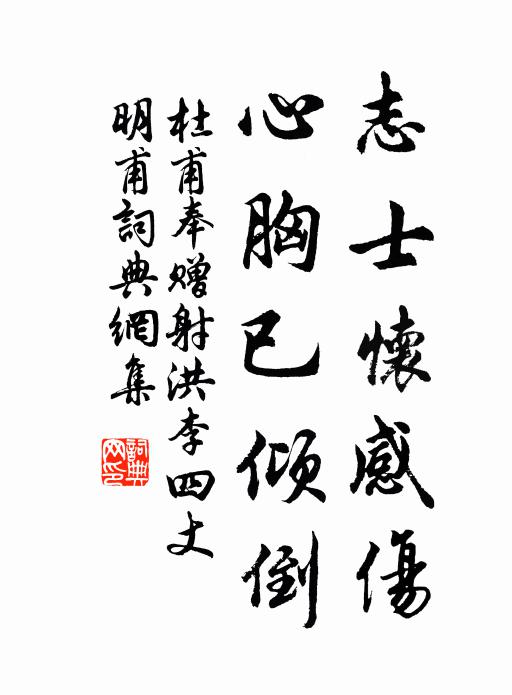 志士懷感傷
心胸已傾倒
杜甫奉贈射洪李四丈
明甫詞典網集
詞典網印